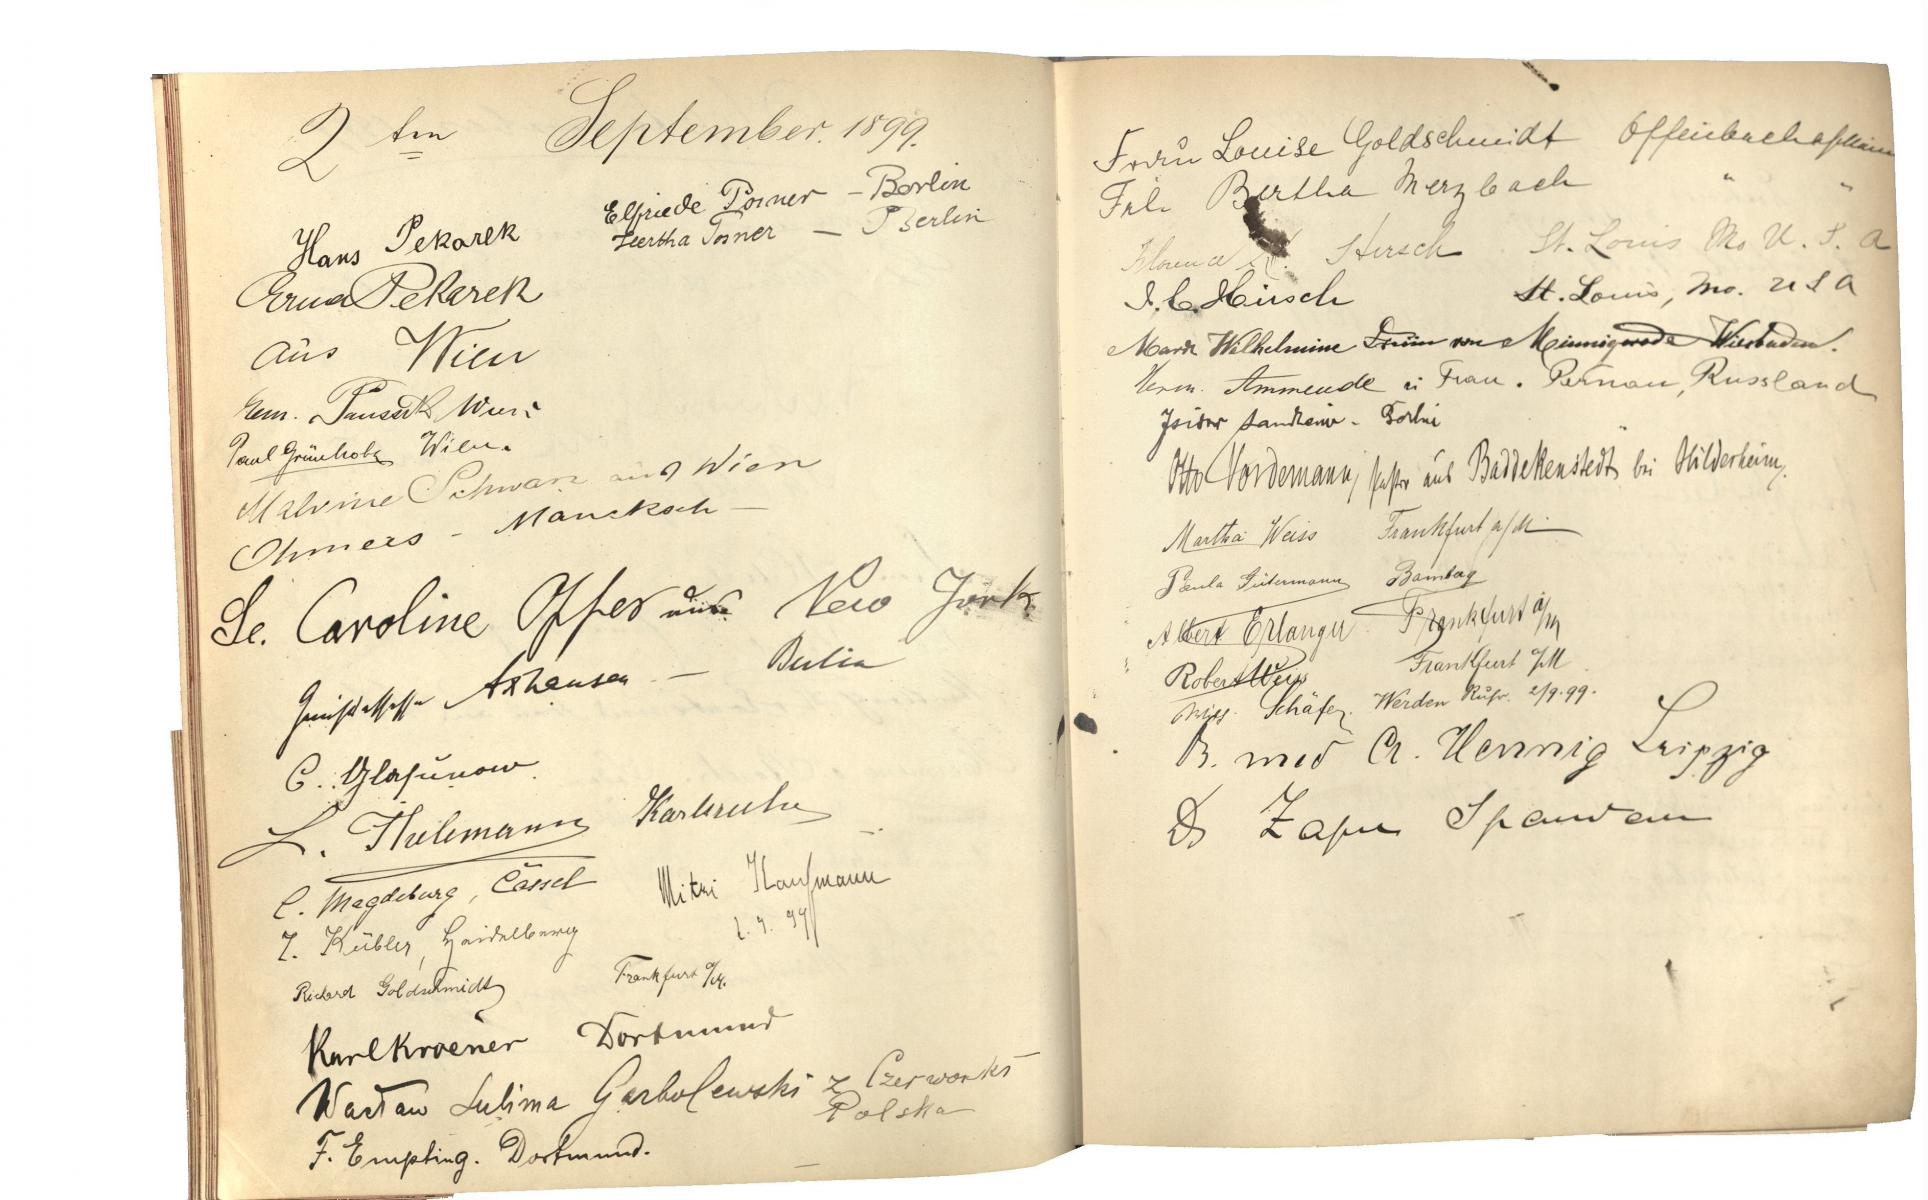 2 ten September. 1899.
Elfriede Posner – Berlin
Hertha Posner – Berlin
Hans Pekarek
Erna Pekarek
aus Wien
Wien
Paul Grünholz Wien.
Malvine Schwarz aus Wien
Ohmers - Mancksch –
Caroline Opfer aus New York
Axhausen – Berlin
C. Glasunow
L. Thelemann Karlsruhe
C. Magdeburg, Cassel
Mitzi Kaufmann
2. 9. 99
J. Kübler, Heidelberg
Richard Goldschmidt Frankfurt a/M.
Karl Kroener Dortmund
Wacław Lubima Garbolewski z Czerwonki
Polska
F. Empting. Dortmund.
Frau Louise Goldschmidt Offenbach a/Main
Frl. Bertha Merzbach " "
Hirsch St. Louis Mo U. S. A
J. C. Hirsch St. Louis, Mo. U S A
Marie Wilhelmine von Minnigerode Wiesbaden.
Herm. Ammende u Frau. Pernau, Russland
Isidor Sandheim - Berlin
Otto Vordemann, Pastor aus Baddekenstedt bei Hildesheim.
Martha Weiss Frankfurt a/M
Paula Gütermann Bamberg
Albert Erlanger Frankfurt a/M
Robert Weiss Frankfurt a/M
Schäfer. Werden Ruhr. 2/9.99.
med C. Hennig Leipzig
Dr Spandau